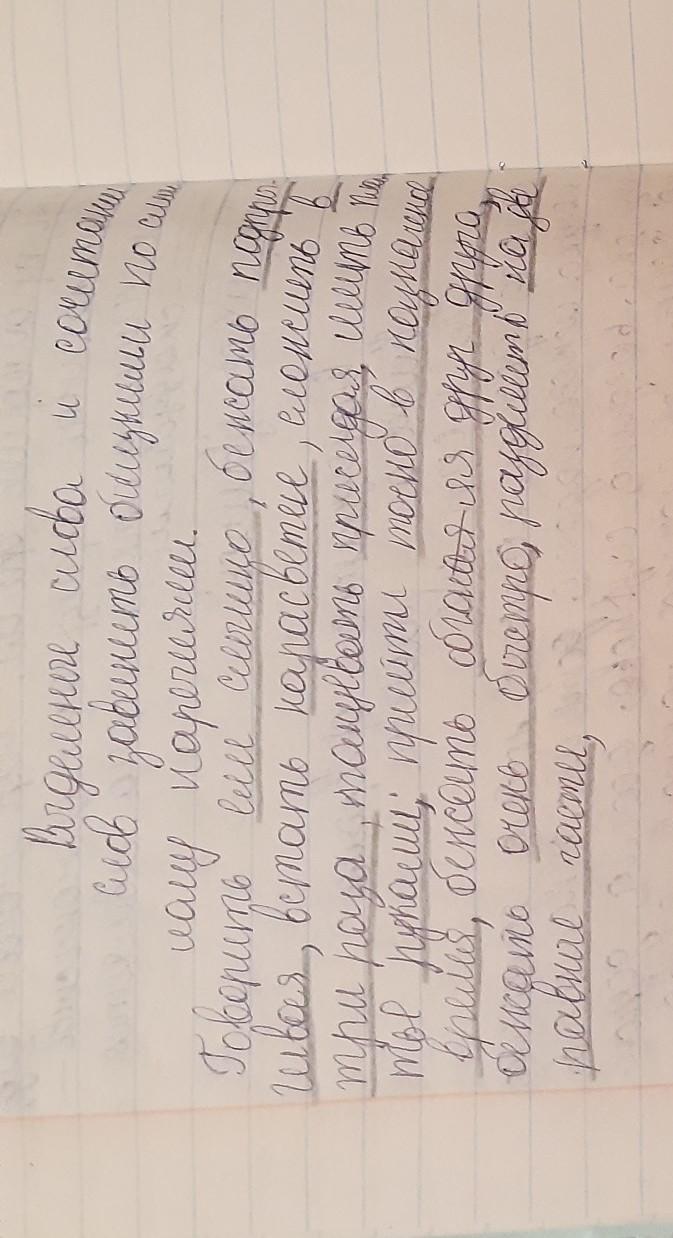 Выделеные слова и сочитании
слов завинить близкими по смы
слу наречиями.
Говорить еле слышно, бежать подпры-
гивая, встать нарасвете, сложить в
три раза, танцевать приседая, шить пла
тье руками, прийти точно в назначеное
время, бежать обгоняя друг друга,
бежать очень быстро, разделить на две
равные части,